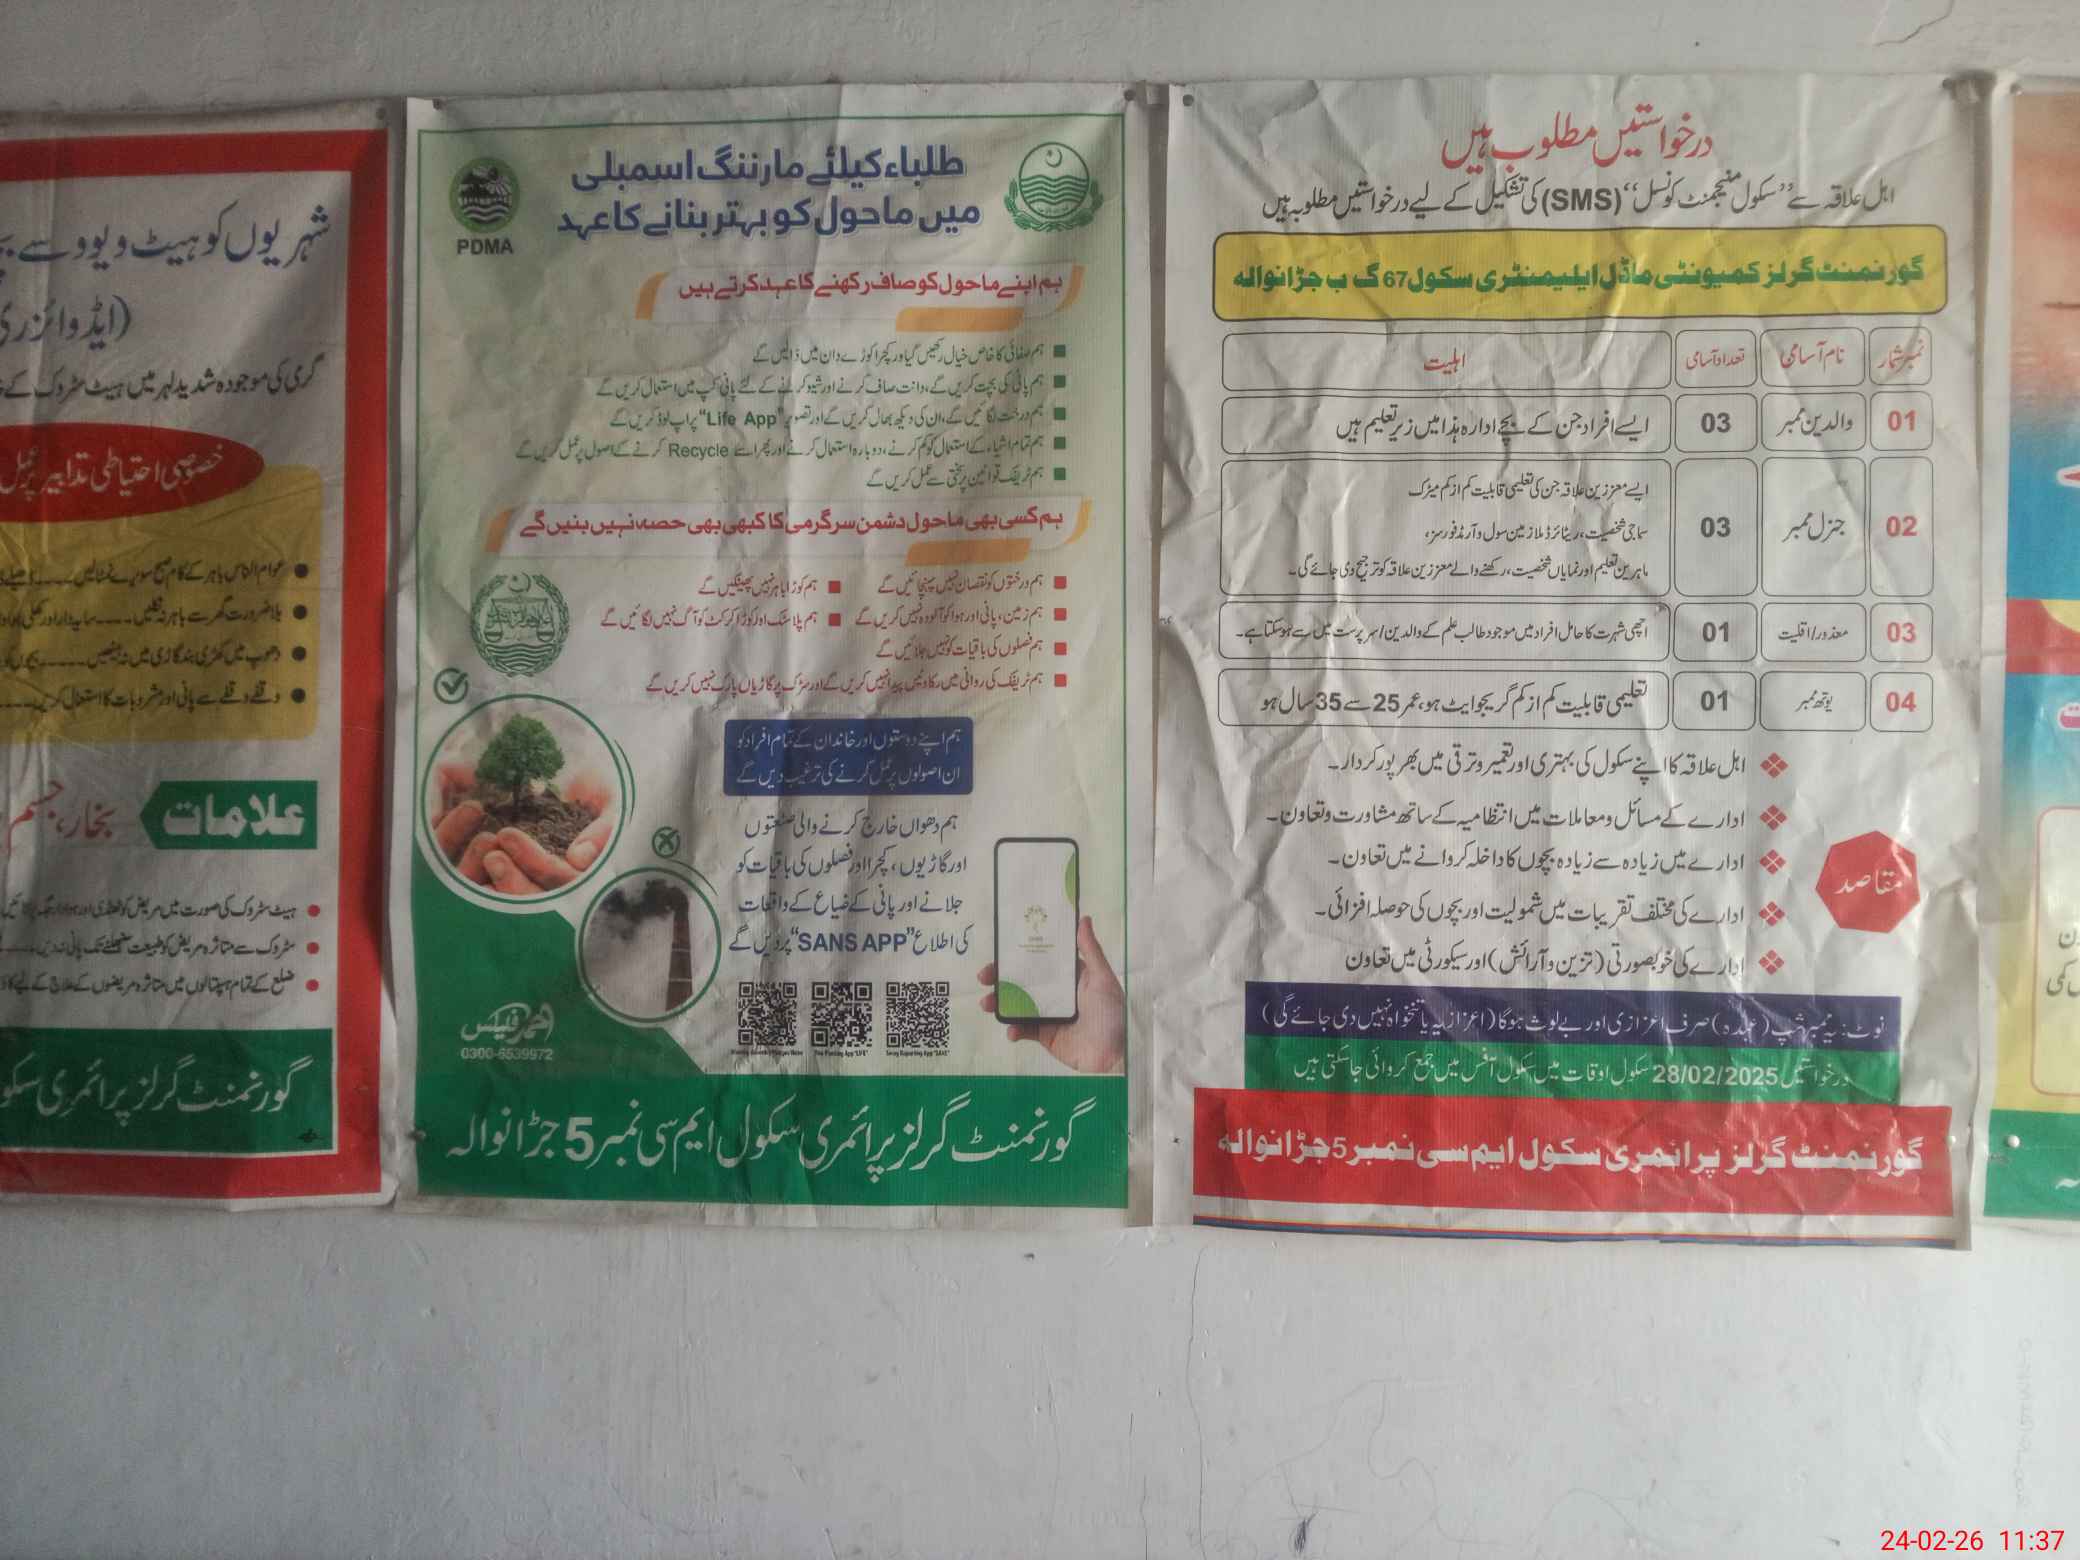 درخواستیں مطلوب ہیں
اہل علاقہ سے ”سکول منیجمنٹ کونسل“ (SMS) کی تشکیل کے لیے درخواستیں مطلوب ہیں
گورنمنٹ گرلز کمیونٹی ماڈل ایلیمنٹری سکول 67 گ ب جڑانوالہ
نمبر شمار نام آسامی تعداد آسامی اہلیت
01 والدین ممبر 03 ایسے افراد جن کے بچے ادارہ ہذا میں زیر تعلیم ہیں
02 جنرل ممبر 03 ایسے معززین علاقہ جن کی تعلیمی قابلیت کم از کم میٹرک
سماجی شخصیت، ریٹائرڈ ملازمین سول و آرمڈ فورسز،
ماہرین تعلیم اور نمایاں شخصیت، رکھنے والے معززین علاقہ کو ترجیح دی جائے گی۔
03 معذور/اقلیت 01 اچھی شہرت کا حامل افراد میں موجود طالب علم کے والدین/سرپرست میں سے ہو سکتا ہے۔
04 یوتھ ممبر 01 تعلیمی قابلیت کم از کم گریجوایٹ ہو، عمر 25 سے 35 سال ہو
مقاصد
اہل علاقہ کا اپنے سکول کی بہتری اور تعمیر و ترقی میں بھرپور کردار۔
ادارے کے مسائل و معاملات میں انتظامیہ کے ساتھ مشاورت و تعاون۔
ادارے میں زیادہ سے زیادہ بچوں کا داخلہ کروانے میں تعاون۔
ادارے کی مختلف تقریبات میں شمولیت اور بچوں کی حوصلہ افزائی۔
ادارے کی خوبصورتی (تزین و آرائش) اور سیکورٹی میں تعاون
نوٹ: یہ ممبر شپ (عہدہ) صرف اعزازی اور بے لوث ہوگا (اعزازیہ یا تنخواہ نہیں دی جائے گی)
درخواستیں 28/02/2025 سکول اوقات میں سکول آفس میں جمع کروائی جا سکتی ہیں
گورنمنٹ گرلز پرائمری سکول ایم سی نمبر 5 جڑانوالہ
طلباء کیلئے مارننگ اسمبلی
میں ماحول کو بہتر بنانے کا عہد
PDMA
ہم اپنے ماحول کو صاف رکھنے کا عہد کرتے ہیں
ہم صفائی کا خاص خیال رکھیں گے اور کچرا کوڑے دان میں ڈالیں گے
ہم پانی کی بچت کریں گے، دانت صاف کرنے اور شیو کرنے کے لئے پانی کپ میں استعمال کریں گے
ہم درخت لگائیں گے، ان کی دیکھ بھال کریں گے اور تصویر "Life App" پر اپ لوڈ کریں گے
ہم تمام اشیاء کے استعمال کو کم کرنے، دوبارہ استعمال کرنے اور پھر اسے Recycle کرنے کے اصول پر عمل کریں گے
ہم ٹریفک قوانین پر سختی سے عمل کریں گے
ہم کسی بھی ماحول دشمن سرگرمی کا کبھی بھی حصہ نہیں بنیں گے
ہم درختوں کو نقصان نہیں پہنچائیں گے
ہم کوڑا باہر نہیں پھینکیں گے
ہم زمین، پانی اور ہوا کو آلودہ نہیں کریں گے
ہم پلاسٹک اور کوڑا کرکٹ کو آگ نہیں لگائیں گے
ہم فصلوں کی باقیات کو نہیں جلائیں گے
ہم ٹریفک کی روانی میں رکاوٹیں پیدا نہیں کریں گے اور سڑک پر گاڑیاں پارک نہیں کریں گے
ہم اپنے دوستوں اور خاندان کے تمام افراد کو
ان اصولوں پر عمل کرنے کی ترغیب دیں گے
ہم دھواں خارج کرنے والی صنعتوں
اور گاڑیوں، کچرا اور فصلوں کی باقیات کو
جلانے اور پانی کے ضیاع کے واقعات
کی اطلاع "SANS APP" پر دیں گے
0300-6539972
گورنمنٹ گرلز پرائمری سکول ایم سی نمبر 5 جڑانوالہ
شہریوں کو ہیٹ ویوو سے
(ایڈوائزری
گرمی کی موجودہ شدید لہر میں ہیٹ سٹروک کے
خصوصی احتیاطی تدابیر پر عمل
عوام الناس باہر کے کام صبح سویرے نمٹالیں
بلا ضرورت گھر سے باہر نہ نکلیں
دھوپ میں کھڑی بند گاڑی میں نہ بیٹھیں
وقفے وقفے سے پانی اور مشروبات کا استعمال کریں
علامات
بخار، جسم
ہیٹ سٹروک کی صورت میں مریض کو ٹھنڈی اور ہوادار جگہ
سٹروک سے متاثرہ مریض کو طبیعت سنبھلنے تک پانی نہ دیں
ضلع کے تمام ہسپتالوں میں متاثرہ مریضوں کے علاج کے لیے
گورنمنٹ گرلز پرائمری سکو
24-02-26 11:37